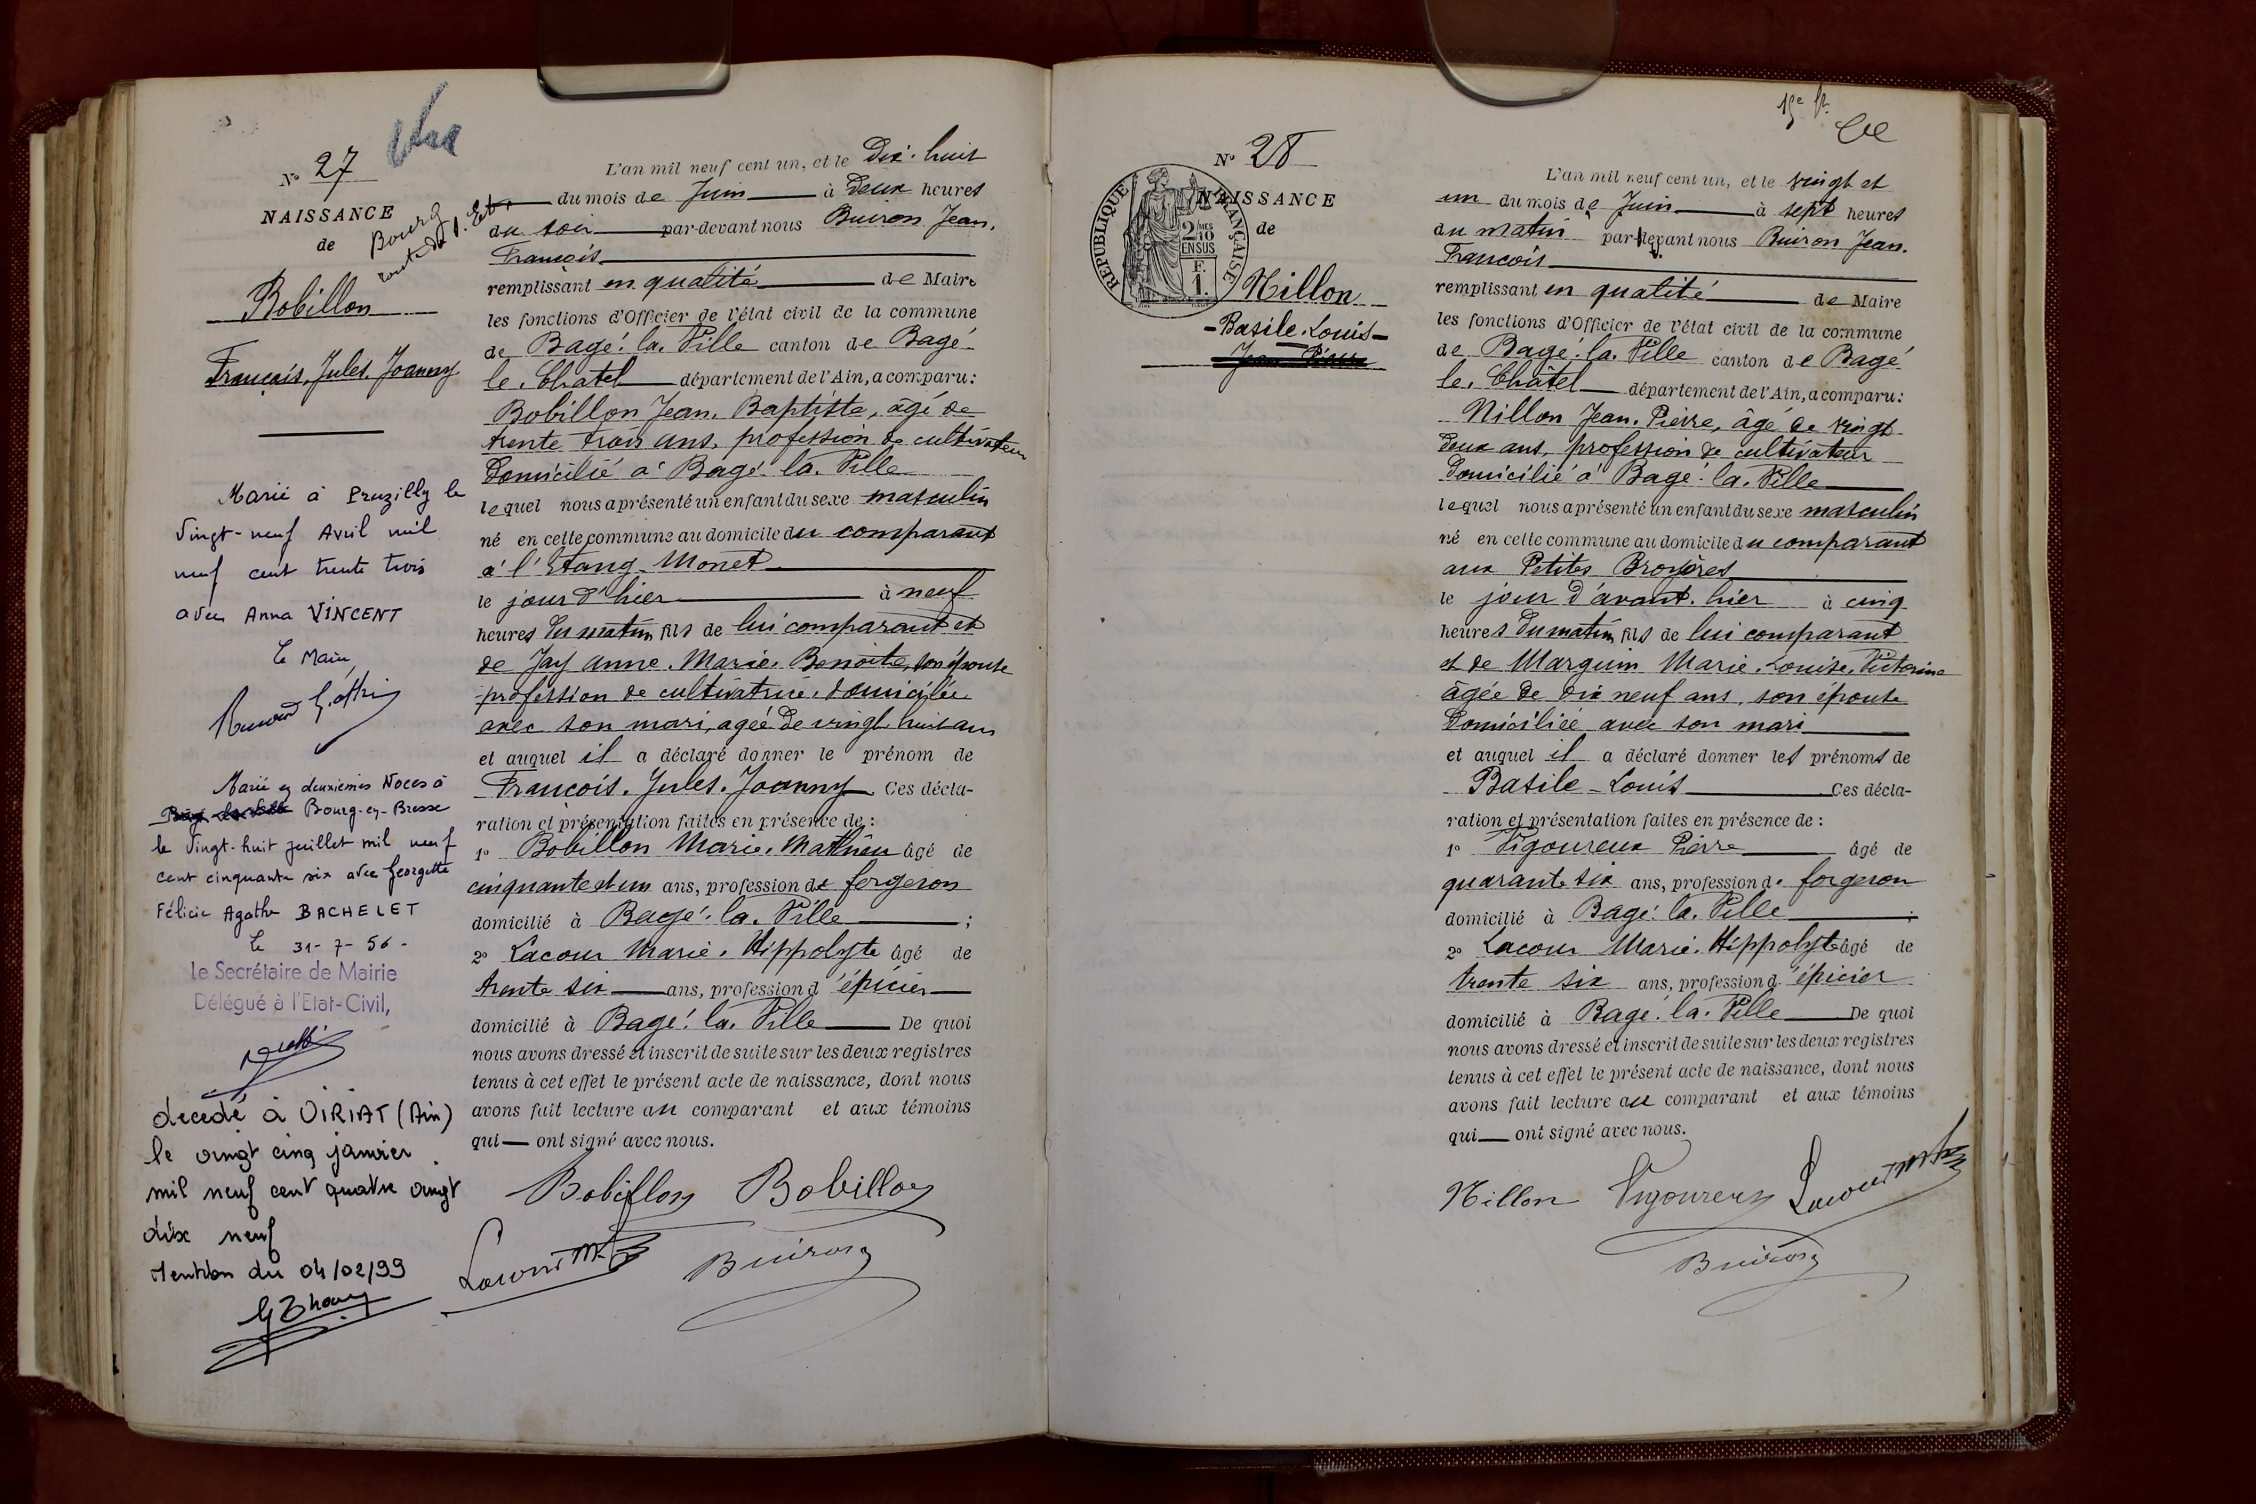 N° 27
NAISSANCE
de
Bobillon
François, Jules, Joanny
Bourg
Marié à Pruzilly le
vingt-neuf Avril mil
neuf cent trente trois
avec Anna VINCENT
Le Maire,
Marié en deuxièmes Noces à
Bourg-en-Bresse
le vingt-huit juillet mil neuf
cent cinquante six avec Georgette
Félicie Agathe BACHELET
Le 31-7-56-
Le Secrétaire de Mairie
Délégué à l'Etat-Civil,
décédé à VIRIAT (Ain)
le vingt cinq janvier
mil neuf cent quatre vingt
dix neuf
Mention du 04/02/99
L'an mil neuf cent un, et le Dix-huit
du mois de Juin à Deux heures
du soir par-devant nous Buiron Jean,
François
remplissant en qualité de Maire
les fonctions d'Officier de l'état civil de la commune
de Bagé-la-Ville canton de Bagé-
le-Chatel département de l'Ain, a comparu:
Bobillon Jean-Baptiste, âgé de
trente trois ans, profession de cultivateur
domicilié à Bagé-la-Ville
lequel nous a présenté un enfant du sexe masculin
né en cette commune au domicile du comparant
à l'Etang-Monet
le jour d'hier à neuf
heures du matin fils de lui comparant et
de Jay Anne-Marie-Benoite, son épouse
profession de cultivatrice, domiciliée
avec son mari, agée de vingt-huit ans
et auquel il a déclaré donner le prénom de
François, Jules, Joanny Ces décla-
ration et présentation faites en présence de:
1° Bobillon Marie-Mathieu âgé de
cinquante et un ans, profession de forgeron
domicilié à Bagé-la-Ville;
2° Lacour Marie-Hippolyte âgé de
trente six ans, profession d'épicier
domicilié à Bagé-la-Ville De quoi
nous avons dressé et inscrit de suite sur les deux registres
tenus à cet effet le présent acte de naissance, dont nous
avons fait lecture au comparant et aux témoins
qui ont signé avec nous.
Bobillon Bobillon
Lacour M. H. Buiron
N° 28
NAISSANCE
de
RÉPUBLIQUE FRANÇAISE
2/10 EN SUS
F. 1.
Nillon
-Basile-Louis-
Jean-Pierre
L'an mil neuf cent un, et le vingt et
un du mois de Juin à sept heures
du matin par-devant nous Buiron Jean-
François
remplissant en qualité de Maire
les fonctions d'Officier de l'état civil de la commune
de Bagé-la-Ville canton de Bagé
le-Châtel département de l'Ain, a comparu:
Nillon Jean-Pierre, âgé de vingt
deux ans, profession de cultivateur
domicilié à Bagé-la-Ville
lequel nous a présenté un enfant du sexe masculin
né en cette commune au domicile du comparant
aux Petites Broyères
le jour d'avant-hier à cinq
heures du matin fils de lui comparant
et de Marguin Marie-Louise-Victorine
âgée de dix neuf ans, son épouse
domiciliée avec son mari
et auquel il a déclaré donner les prénoms de
Basile-Louis Ces décla-
ration et présentation faites en présence de:
1° Vigoureux Pierre âgé de
quarante six ans, profession de forgeron
domicilié à Bagé-la-Ville;
2° Lacour Marie-Hippolyte âgé de
trente six ans, profession d'épicier
domicilié à Bagé-la-Ville De quoi
nous avons dressé et inscrit de suite sur les deux registres
tenus à cet effet le présent acte de naissance, dont nous
avons fait lecture au comparant et aux témoins
qui ont signé avec nous.
Nillon Vigoureux Lacour M. H.
Buiron